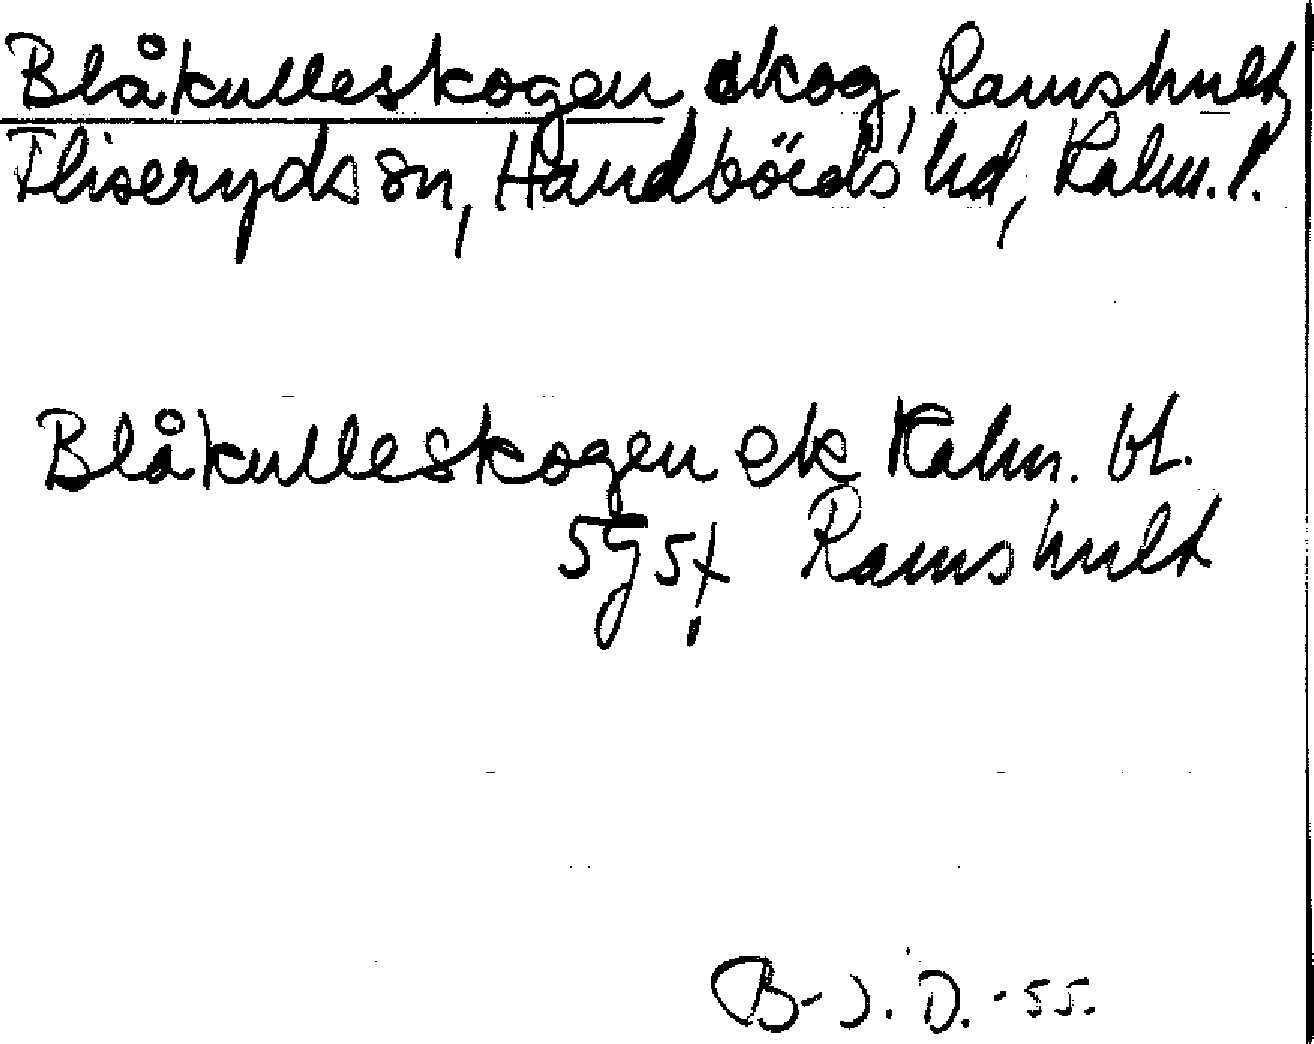 Blåkulleskogen, skog, Ramshult,
Fliseryds sn, Handbörds hd, Kalm. l.
Blåkulleskogen ek Kalm. bl.
5g5f Ramshult
B-J. D. -55.